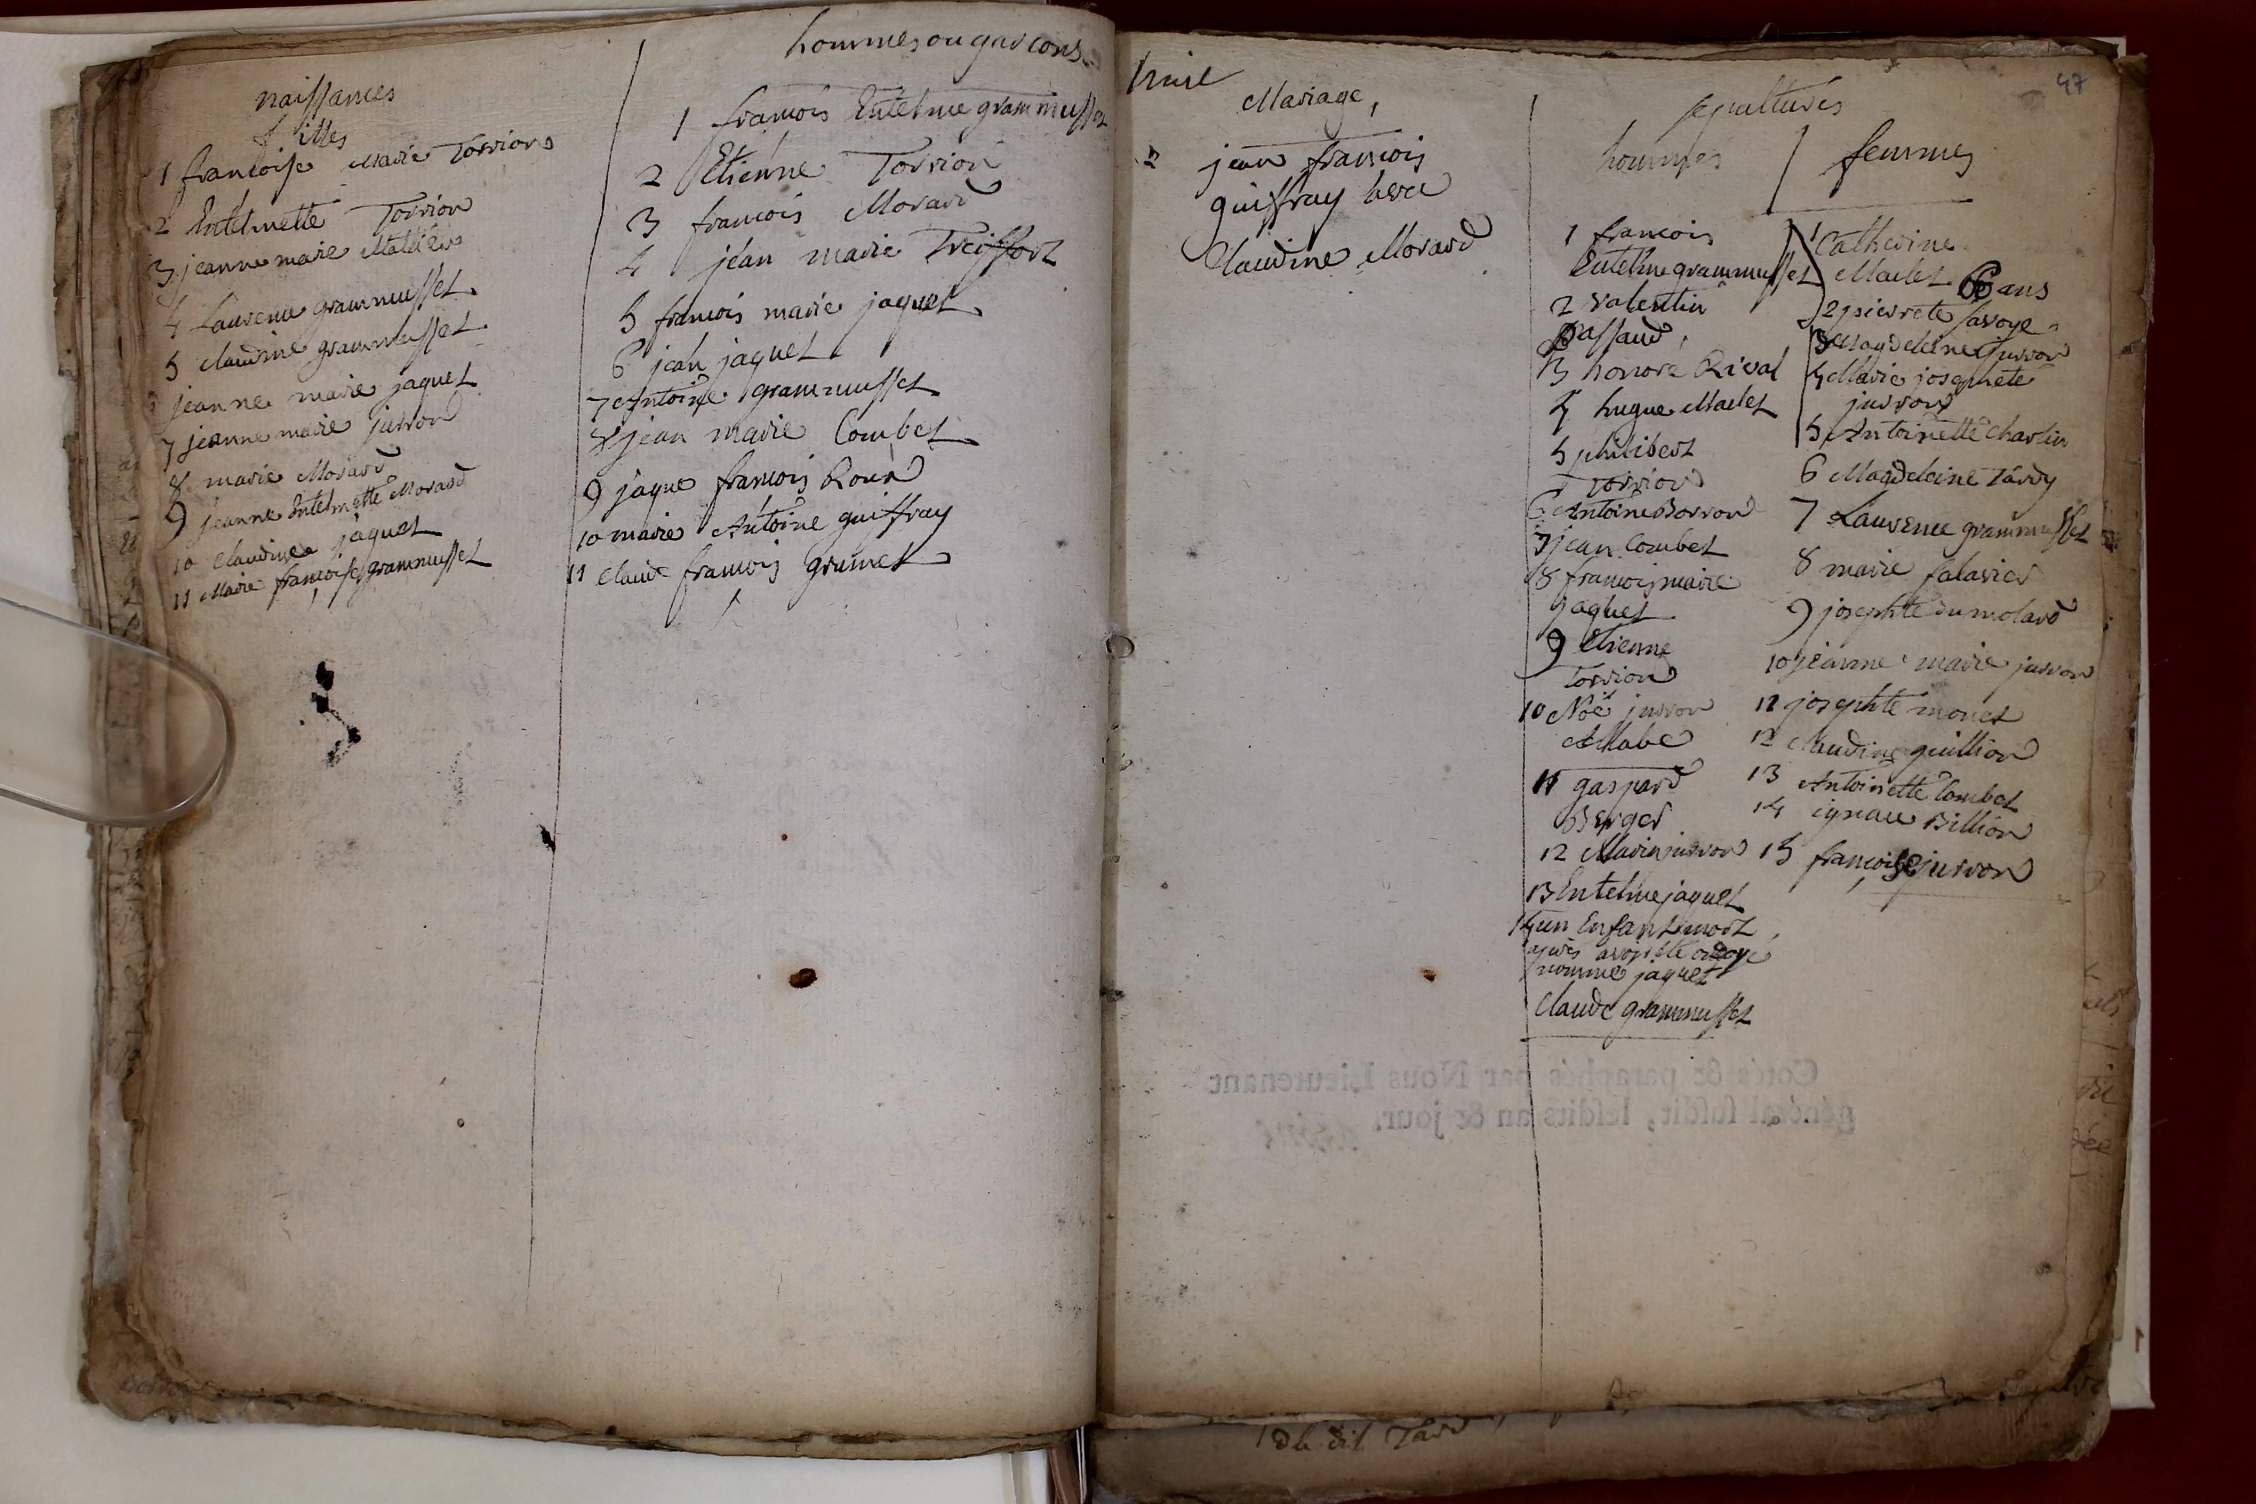 naissances
filles
1 francoise marie Torrion
2 Entelmette Torrion
3 jeanne marie
4 Laurence grammusset
5 claudine grammusset
jeanne marie jaquet
7 jeanne marie jurron
8 marie Morard
9 jeanne Entelmette Morard
10 claudine jaquet
11 Marie françoise grammusset
hommes ou garcons
1 francois Entelme grammusset
2 Etienne Torrion
3 francois Morard
4 jean marie Treffort
5 francois marie jaquet
6 jean jaquet
7 Antoine grammusset
8 jean marie Combet
9 jaque francois Roux
10 marie Antoine guiffray
11 claude francois grumet
Mariage,
2 jean francois
guiffray avec
Claudine Morard
47
sepultures
hommes
1 francois
Entelme grammusset
2 valentin
passaud,
3 honoré Rival
4 hugue Maclet
5 philibert
Torrion
6 Antoine Borron
7 jean Combet
8 francois marie
jaquet
9 Etienne
Torrion
10 Noë jurron
11 gaspard
Berger
12 Marin jurron
13 Entelme jaquet
14 un Enfant mort
apres avoir eté ondoyé
nommé jaquet
Claude grammusset
femmes
1 Catherine
Maclet 66 ans
2 pierrete savoye
3 Magdeleine jurron
4 Marie josephete
jurron
5 Antoinette charlin
6 Magdeleine Tardy
7 Laurence grammusset
8 marie falavier
9 josephte dumolard
10 jeanne marie jurron
11 josephte monet
12 claudine guillion
13 Antoinette Combet
14 ignace Billion
15 françoise jurron
Cotés & paraphés par Nous Lieutenant
général susdit, lesdits an & jour.